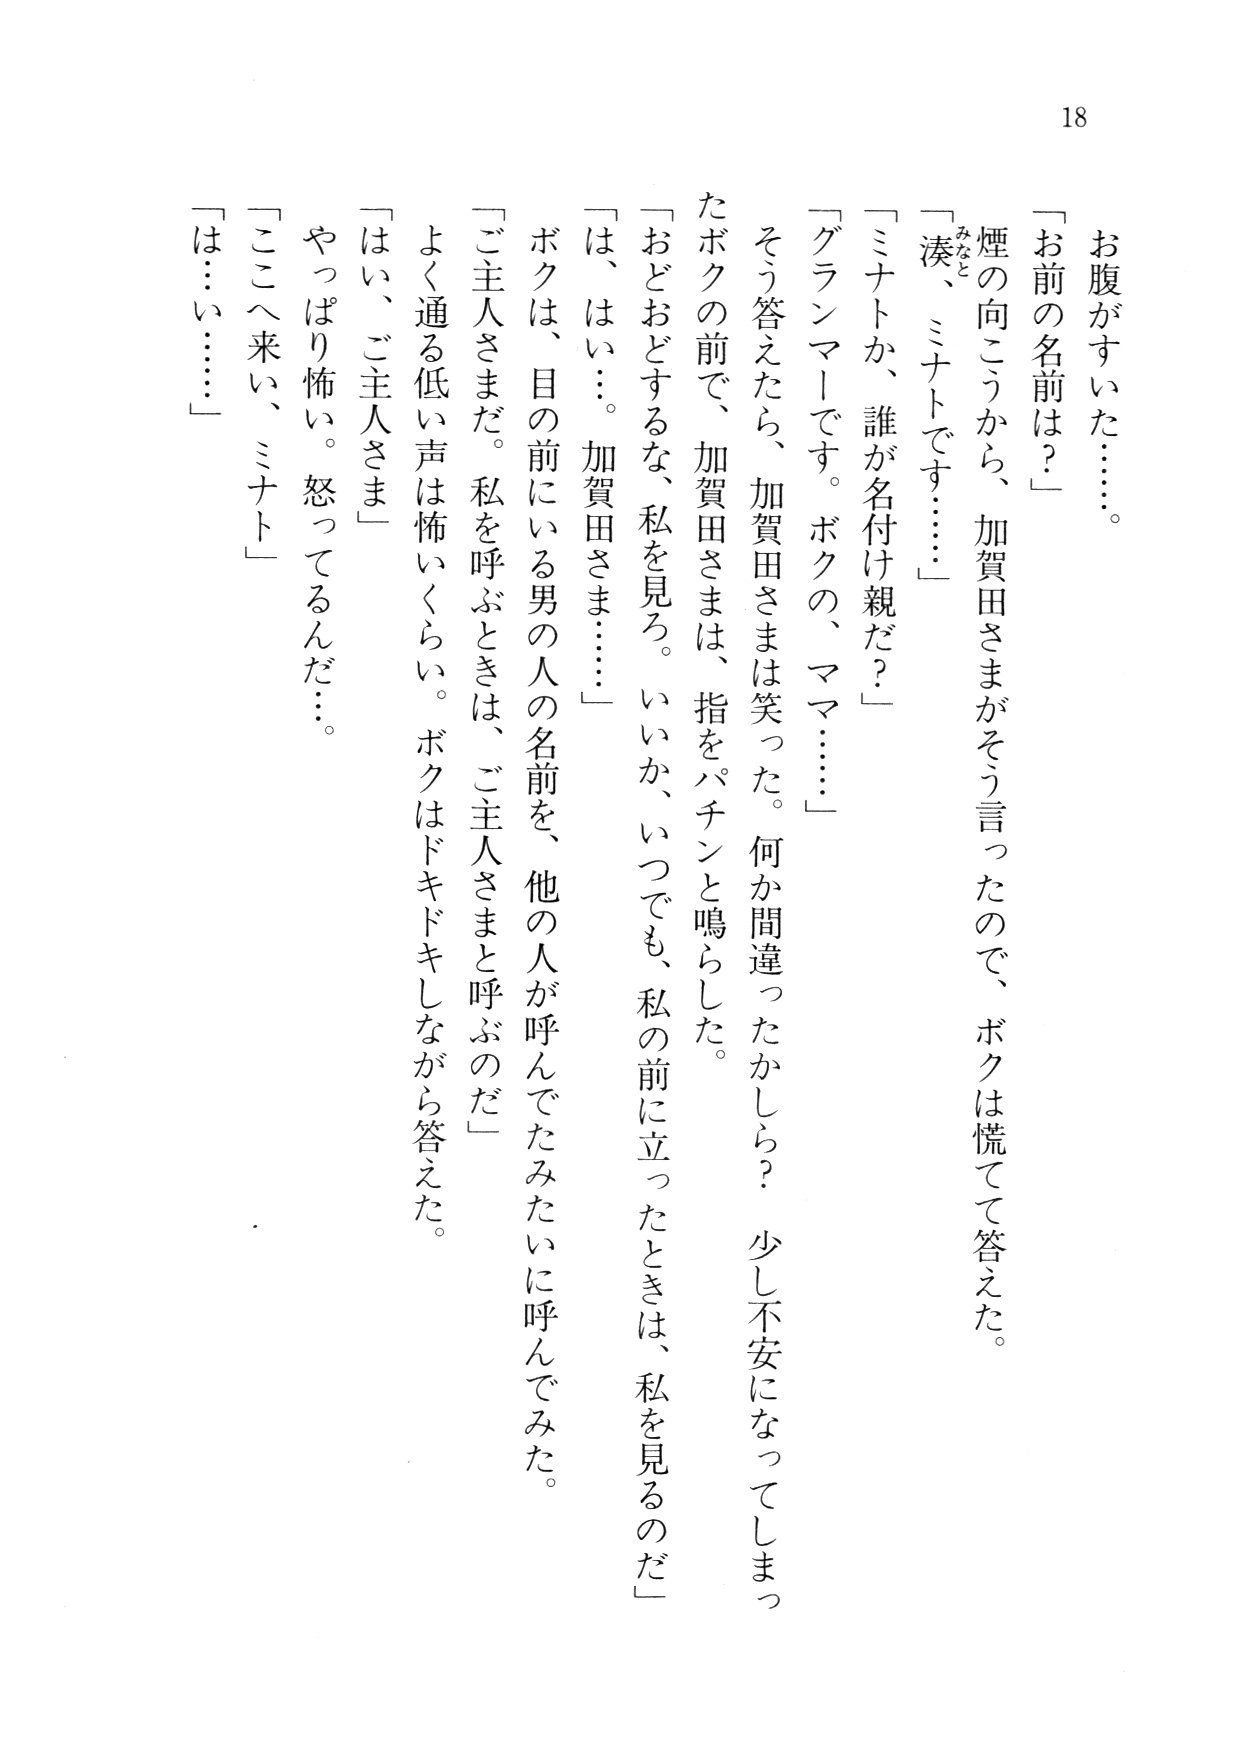 18
お腹がすいた……。
「お前の名前は？」
煙の向こうから、加賀田さまがそう言ったので、ボクは慌てて答えた。
「湊、ミナトです……」
みなと
「ミナトか、誰が名付け親だ？」
「グランマーです。ボクの、ママ……」
そう答えたら、加賀田さまは笑った。何か間違ったかしら？　少し不安になってしまっ
たボクの前で、加賀田さまは、指をパチンと鳴らした。
「おどおどするな、私を見ろ。いいか、いつでも、私の前に立ったときは、私を見るのだ」
「は、はい…。加賀田さま……」
ボクは、目の前にいる男の人の名前を、他の人が呼んでたみたいに呼んでみた。
「ご主人さまだ。私を呼ぶときは、ご主人さまと呼ぶのだ」
よく通る低い声は怖いくらい。ボクはドキドキしながら答えた。
「はい、ご主人さま」
やっぱり怖い。怒ってるんだ…。
「ここへ来い、ミナト」
「は…い……」